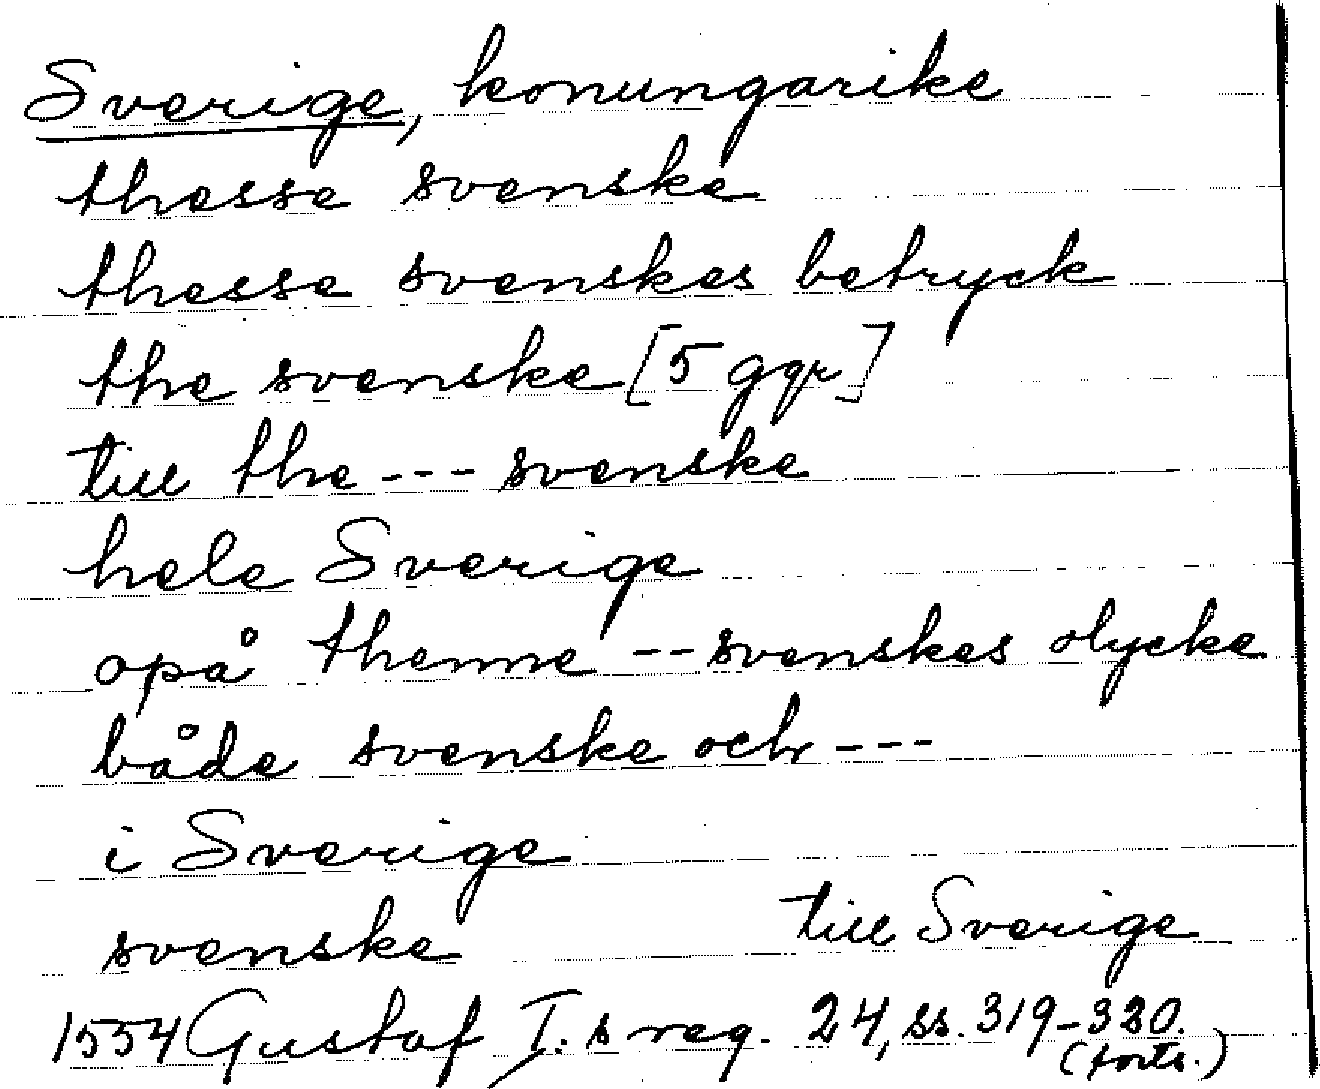 Sverige, konungarike
thesse svenske
thesse svenskes betryck
the svenske [5 ggr]
till the --- svenske
hele Sverige
opå thenne -- svenskes olycke
både svenske och ---
i Sverige
svenske till Sverige
1554 Gustaf I:s reg. 24, ss. 319-320.
(forts.)